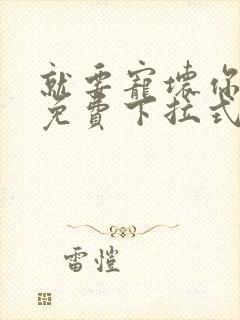 就要寵壞你
免費下拉式
雷愷